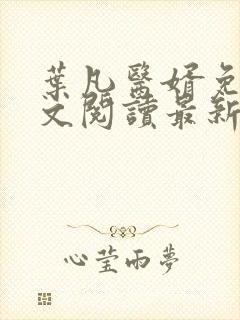 葉凡醫婿免
文閱讀最新
心莹雨夢